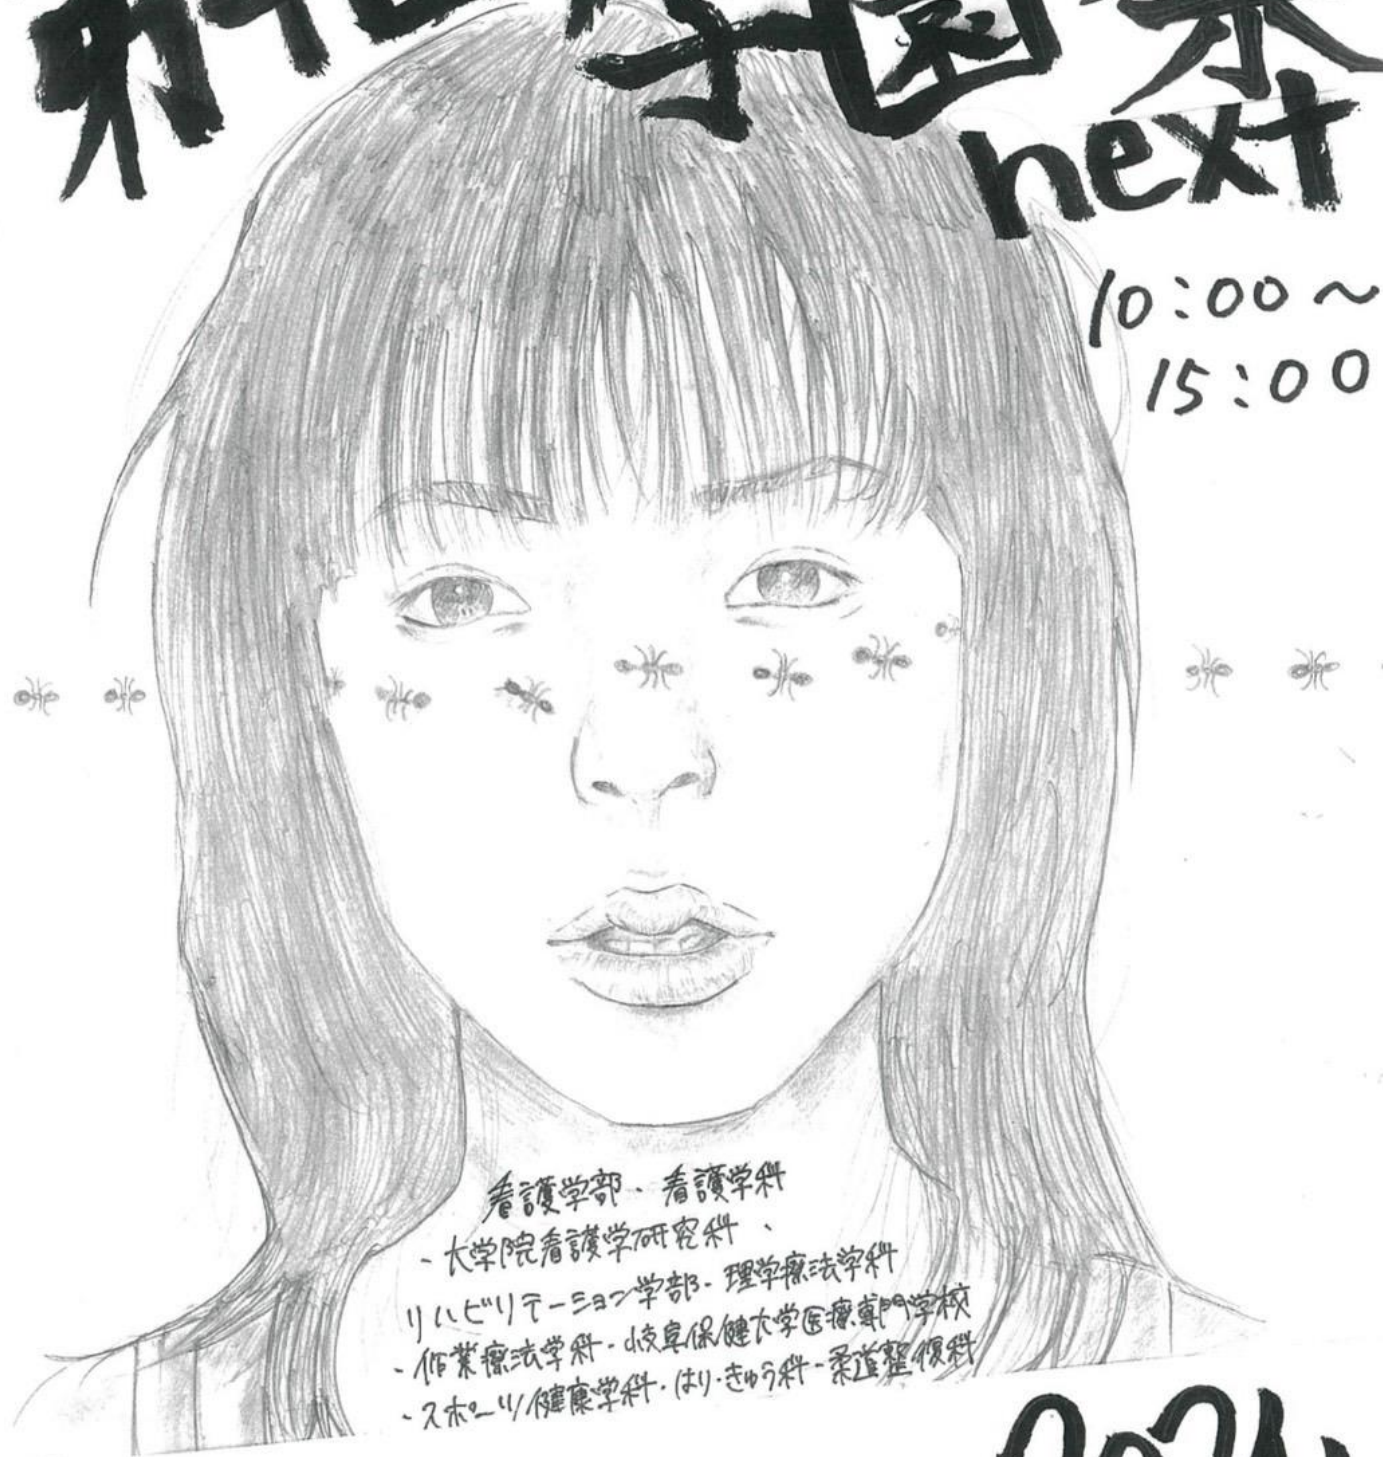 学園祭
next
10:00～
15:00
看護学部・看護学科
・大学院看護学研究科・
リハビリテーション学部・理学療法学科
・作業療法学科・岐阜保健大学医療専門学校
・スポーツ健康学科・はり・きゅう科・柔道整復科